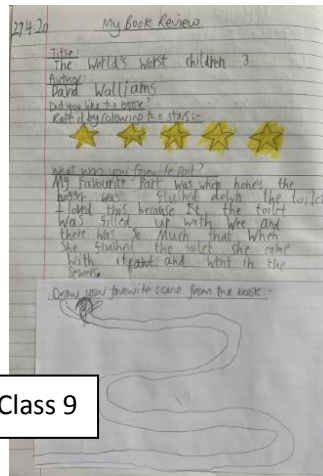 27.4.20
My Book Review
Title:
The World's Worst Children 3
Author:
David Walliams
Did you like the book?
Rate it by colouring the stars:-
What was your favourite part?
My favourite part was when honey the
hogger was flushed down the toilet
I loved this because the toilet
was filled up with wee and
there was so much that when
she flushed the toilet she came
with it and went in the
sewers.
Draw your favourite scene from the book:-
Class 9